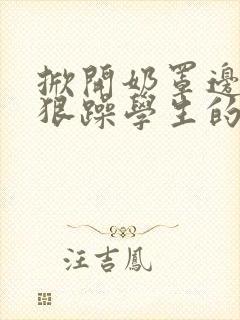 掀開奶罩邊
狠躁學生的
汪吉鳳